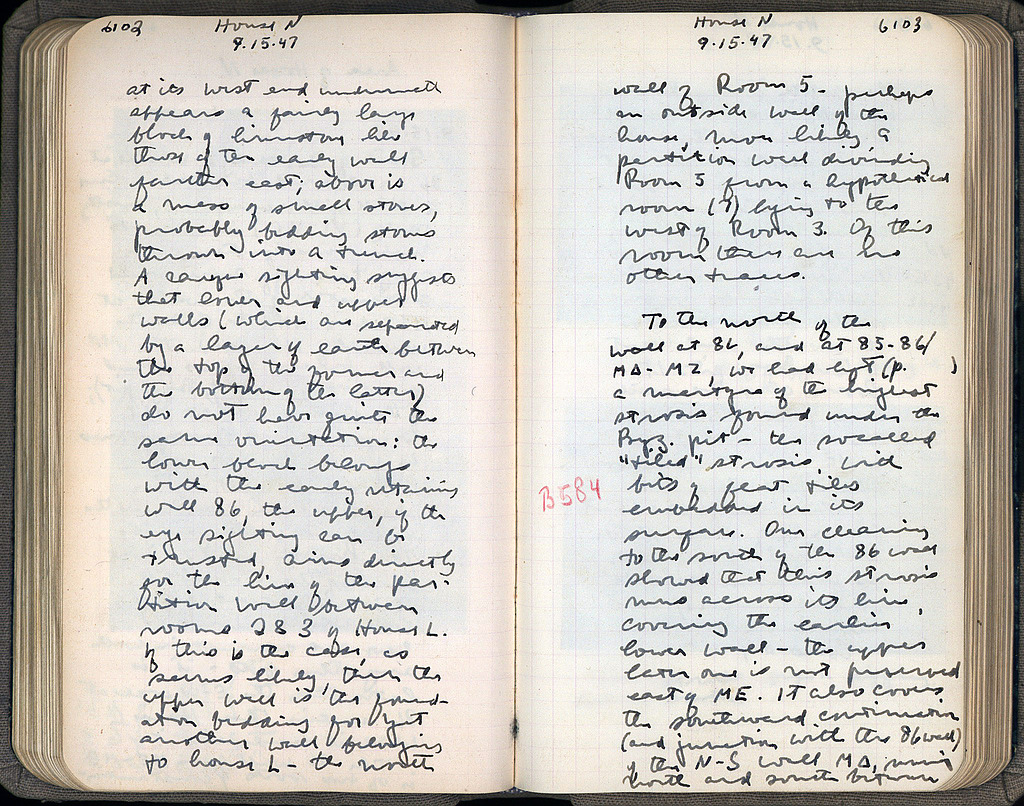 6102
House N
9.15.47
at its west end underneath
appears a fairly large
block of limestone like
those of the early wall
farther east; above is
a mess of small stones,
probably bedding stones
thrown into a trench.
A careful sighting suggests
that lower and upper
walls (which are separated
by a layer of earth between
the top of the former and
the bottom of the latter)
do not have quite the
same orientation: the
lower block belongs
with the early retaining
wall 86, the upper, if the
eye sighting can be
trusted, aims directly
for the line of the par-
tition wall between
rooms 2 & 3 of House L.
If this is the case, as
seems likely, then the
upper wall is the found-
ation bedding for yet
another wall belonging
to house L - the north
6103
House N
9.15.47
wall of Room 5 - perhaps
an outside wall of the
house, more likely a
partition wall dividing
Room 5 from a hypothetical
room (7) lying to the
west of Room 3. Of this
room there are no
other traces.
To the north of the
wall at 86, and at 85-86/
MA-MZ, we had left (p. )
a martyra of the highest
strosis found under the
Byz. pit - the socalled
"tiled" strosis, with
bits of flat tiles
embedded in its
surface. Our cleaning
to the south of the 86 wall
showed that this strosis
runs across its line,
covering the earlier
lower wall - the upper
later one is not preserved
east of ME. It also covers
the southward continuation
(and junction with the 86 wall)
of the N-S wall MA, running
north and south between
B584